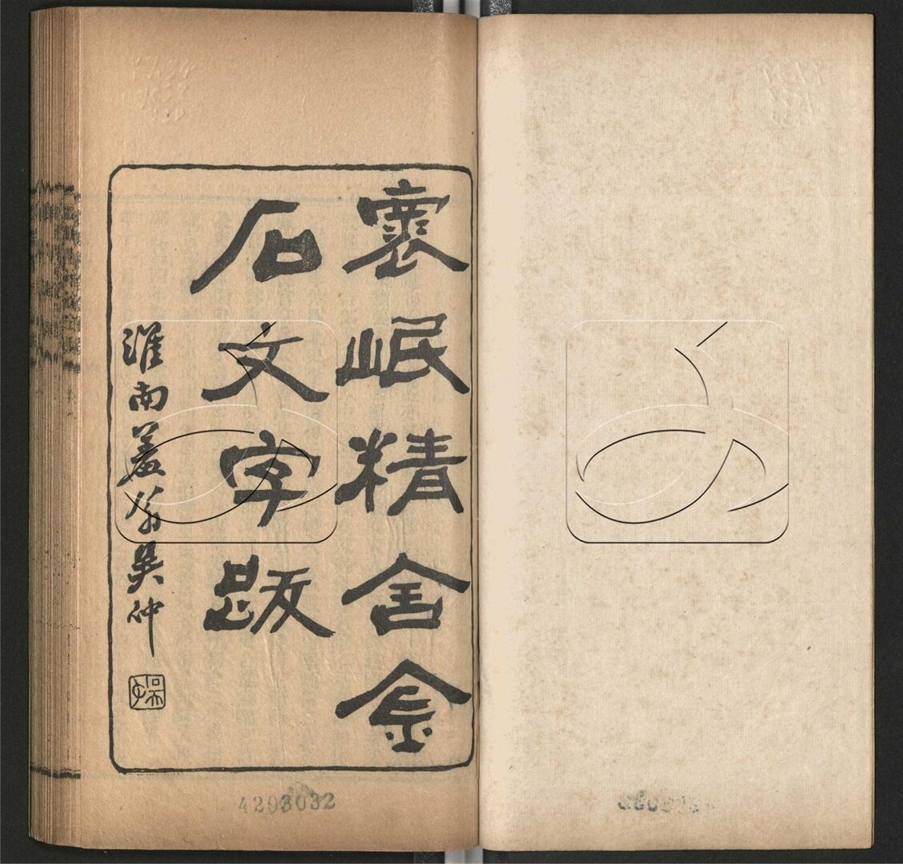 褱岷精舍金
石文字跋
淮南羞翁吳仲
4203032